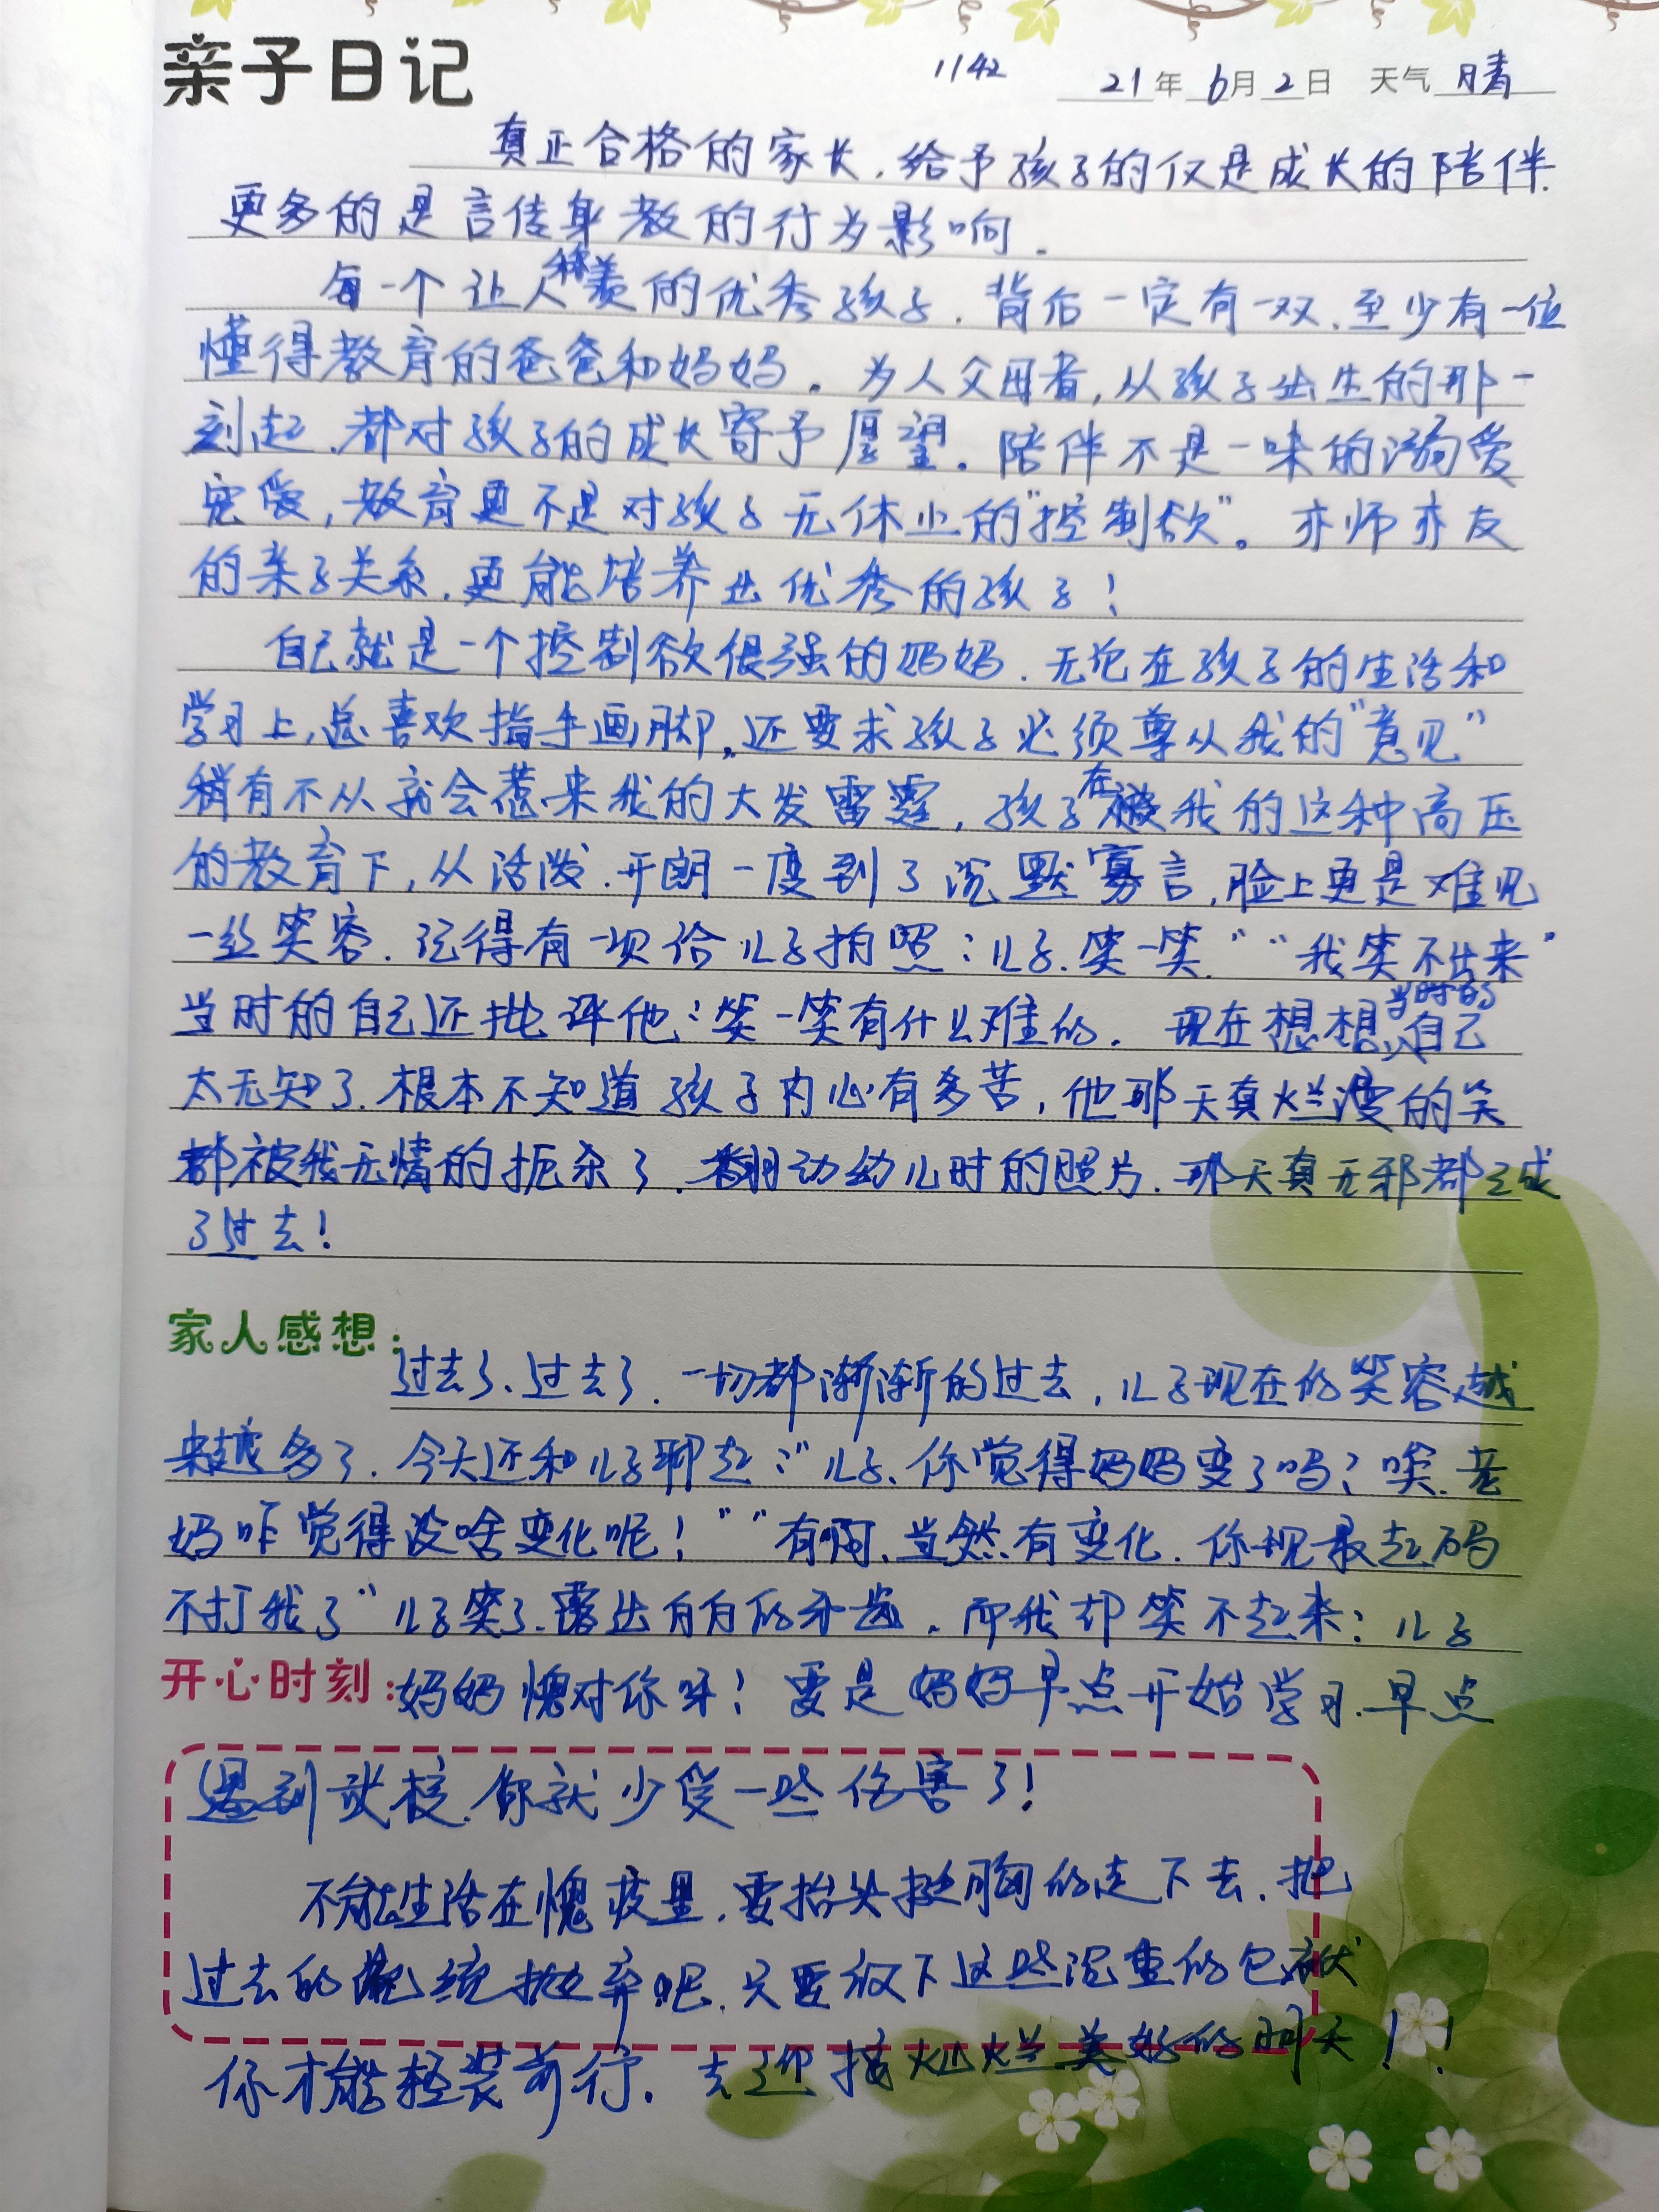 亲子日记 1142 21年6月2日 天气 晴
真正合格的家长,给予孩子的仅是成长的陪伴.
更多的是言传身教的行为影响.
每一个让人称羡的优秀孩子.背后一定有一双、至少有一位
懂得教育的爸爸和妈妈。为人父母者,从孩子出生的那一
刻起.都对孩子的成长寄予厚望。陪伴不是一味的溺爱
宠爱,教育更不是对孩子无休止的"控制欲"。亦师亦友
的亲子关系.更能培养出优秀的孩子!
自己就是一个控制欲很强的妈妈.无论在孩子的生活和
学习上,总喜欢指手画脚,还要求孩子必须尊从我的"意见"
稍有不从就会惹来我的大发雷霆,孩子在我的这种高压
的教育下,从活泼.开朗一度到了沉默寡言,脸上更是难见
一丝笑容.记得有一次给儿子拍照:儿子.笑一笑.""我笑不出来"
当时的自己还批评他:笑一笑有什么难的.现在想想,当时的自己
太无知了.根本不知道孩子内心有多苦,他那天真烂漫的笑
都被我无情的扼杀了.翻动幼儿时的照片.那天真无邪都已成
了过去!
家人感想:
过去了、过去了.一切都渐渐的过去,儿子现在的笑容越
来越多了.今天还和儿子聊起:"儿子、你觉得妈妈变了吗?唉.老
妈咋觉得没啥变化呢!""有啊、当然有变化.你现最起码
不打我了"儿子笑了.露出白白的牙齿.而我却笑不起来:儿子
开心时刻:妈妈愧对你呀!要是妈妈早点开始学习.早点
遇到武校.你就少受一些伤害了!
不能生活在愧疚里.要抬头挺胸的走下去.把
过去的统统抛弃吧.只要放下这些沉重的包袱
你才能轻装前行.去迎接灿烂美好的明天!!